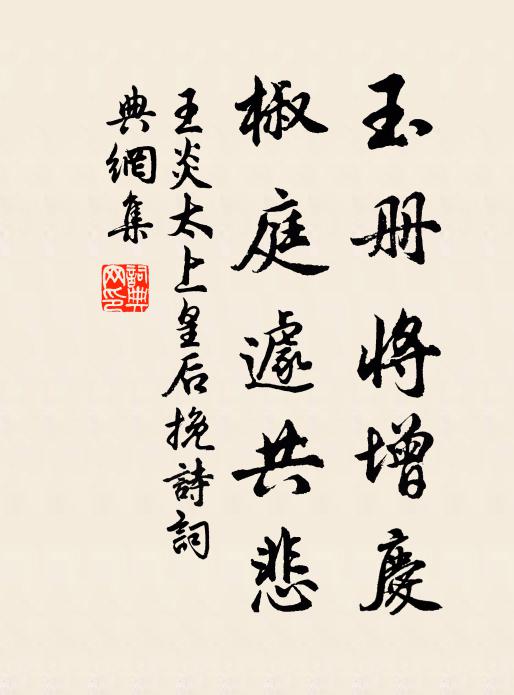 玉册將增慶
椒庭遽共悲
王炎太上皇后挽詩詞
典網集
詞典網印